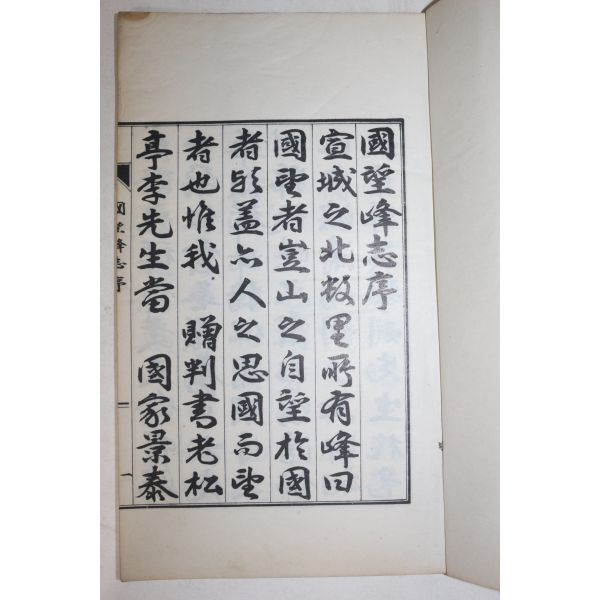 國望峰志序
宣城之北數里所有峰曰
國望者豈山之自望於國
者歟蓋亦人之思國而望
者也惟我 贈判書老松
亭李先生當 國家景泰
國望峰志序
一